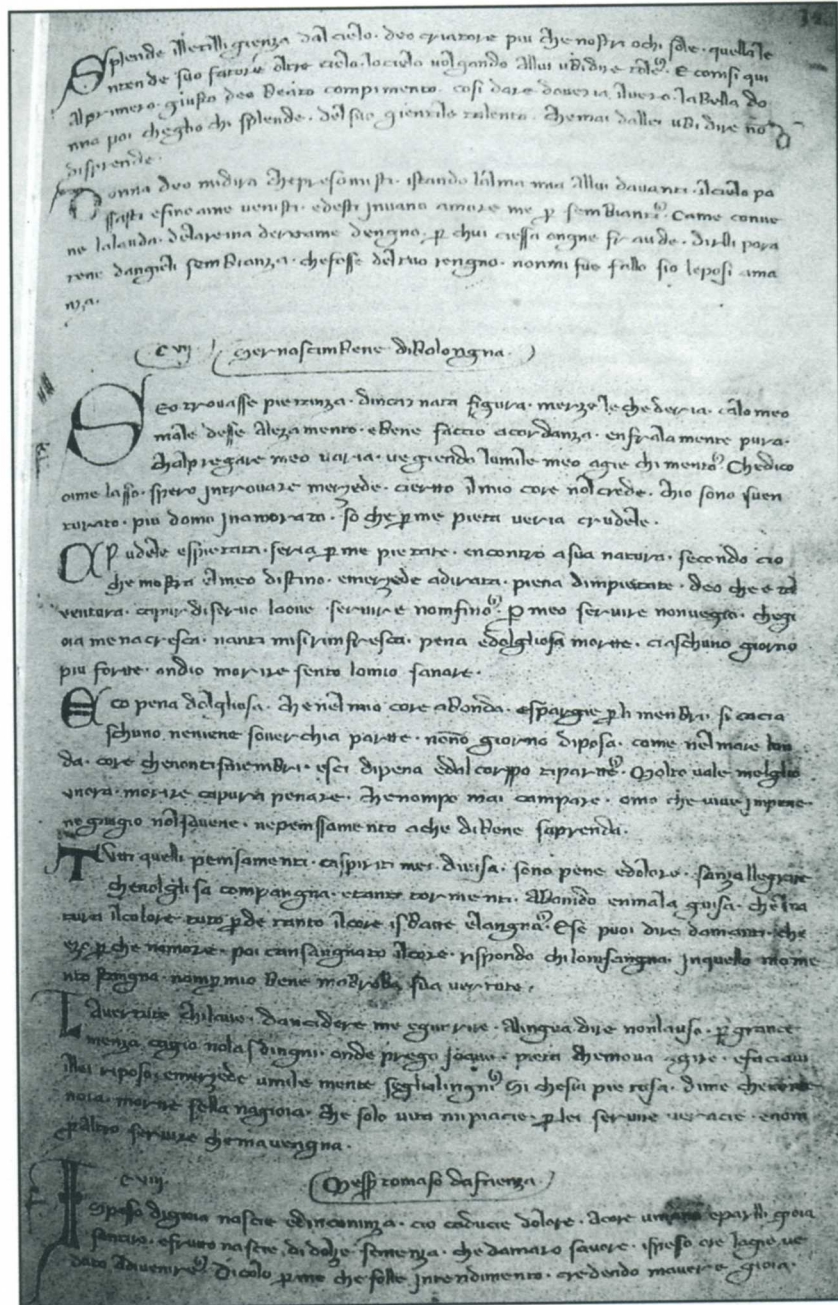 Splende illetilligienza dalcielo. deo criatore piu che nostri ochi sole. quella le
ntende suo fatore oltre cielo. locielo volgando allui ubidire tole. E comsi qui
alprimero. giusto deo beato compimento. cosi dare doveria ilvero. labella do
nna poi cheglio chi splende. delsuo gientile talento. chemai dallei ubidire no
disprende.
Donna deo midira chepresomisti. istando lalma mia allui davanti. ilcielo pa
ssasti efino ame venisti. edesti jnvano amore me p sembianti. Came conve
ne lalauda. delareina dereame dengno. p chui ciessa ongne fraude. dirlli pora
tene dangieli sembianza. chefosse deltuo rengno. nonmi fue fallo sio leposi ama
nza.
cvij. Sernascimbene dibolongna.
Seo trovasse pietanza. dincarnata figura. merze le chederia. calo meo
male desse alezamento. ebene faccio acordanza. enfralamente pura.
chalpregare meo varia. vegiendo lumile meo agiechimento. Chedico
oime lasso. spero jntrovare merzede. ciertto ilmio core nolcrede. chio sono isven
turato. piu domo jnamorato. so che p me pieta veria crudele.
Crudele esspietata. seria p me pietate. encontro asua natura. secondo cio
che mostra elmeo distino. emerzede adirata. piena dimpietate. deo che
ventura. servire e nomfino. p meo servire nonvegio. chegi
oia menacresca. nanti misirimfresca. pena edolgliosa mortte. ciaschuno giorno
piu fortte. ondio morire sento lomio sanare.
Eco pena dolgliosa. che nelmio core abonda. esspargie p li membri. si cacia
schuno. neviene soverchia partte. nono giorno diposa. come nelmare lon
da. core chenonti smembri. esci dipena edalcorppo tipartte. Molto vale melglio
unora. morire capura penare. chenompo mai campare. omo che vive jmpene
negiugio noljavene. nepemssamento ache dibene saprenda.
Tuti quelli pemsamenti. caspiriti mei divisa. sono pene edolore. sanzallegrare
chenolgli sa compangna. etanti tormenti. abondo enmala guisa. chelna
turai ilcolore tuto p de tanto ilcore isbatte elangna. Ese puoi dire damanti. che
eze p che nomore. poi cansangnato ilcore. rispondo chi lomsangna. jnquello mome
nto stangna. nomp mio bene mabroba sua vertute.
Lavertute chilave. dancidere me eguerire. alingua dire nonlauso. p grante
menza cagio nolasdingni. onde prego pieta chemova agire. efaciavi
illei riposo. emerzede umile mente seglialingni. Si chesia pietosa. dime che
noia. mortte sella nagioia. che solo vivo mi piacie. p lei servire veracie. enom
p altro servire chemavengna.
cviij. Messer tomaso dafaenza.
Ispesso digioia nascie edincomínza. cio caducie dolore. acore umano eparlli gioia
sentire. efrutto nascie. di dolze semenza. chedamaro savore. ispesso cio lagio ve
duto adivenire. Dicolo p me che folle jntendimento. credendo mavere gioia.